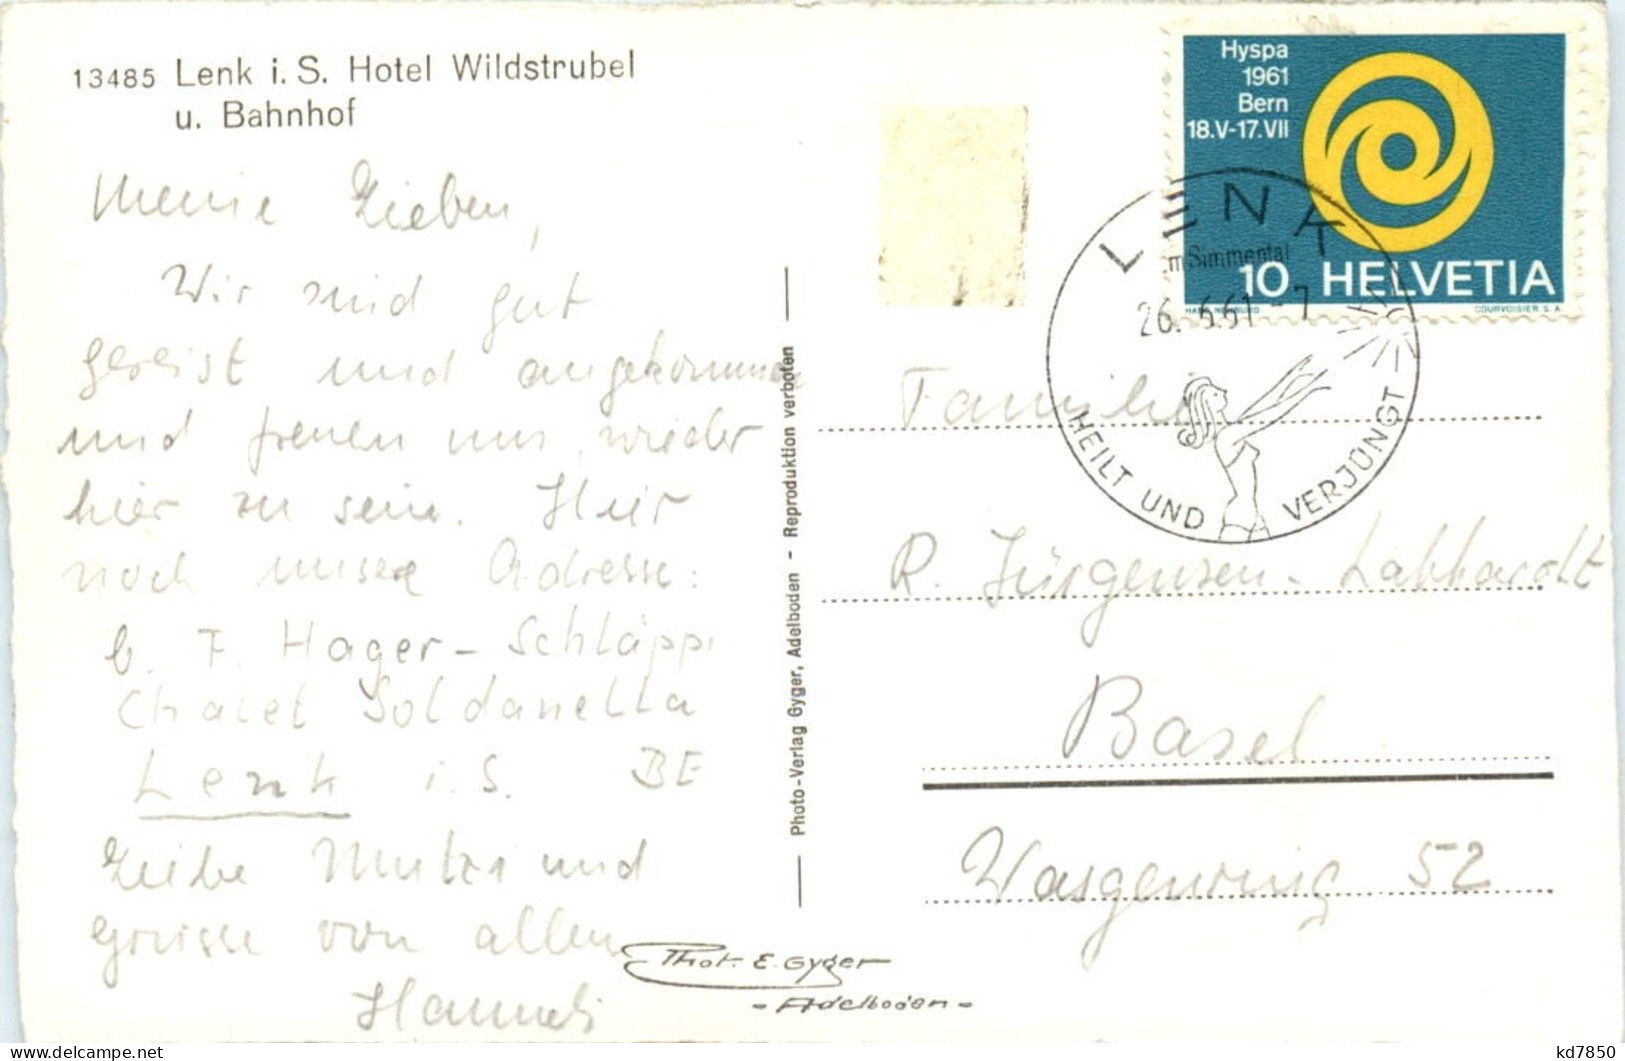 13485 Lenk i. S. Hotel Wildstrubel
u. Bahnhof
Meine Lieben,
Wir sind gut
gereist und angekommen
und freuen uns, wieder
hier zu sein. Hier
noch unsere Adresse:
b. F. Hager-Schläppi
Chalet Soldanella
Lenk i.S. BE
Liebe Mutzi und
Grüsse von allen
Hanneli
Phot. E. Gyger
- Adelboden -
Photo-Verlag Gyger, Adelboden - Reproduktion verboten
Hyspa
1961
Bern
18.V-17.VII
10 HELVETIA
HANS NEUBURG COURVOISIER S.A.
LENK
im Simmental
26.6.61 - 7
HEILT UND VERJÜNGT
Familie
R. Jürgensen-Labhardt
Basel
Wasgenring 52
kd7850